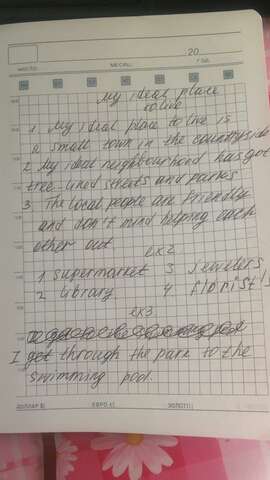 20
МЕСЯЦ
ГОД
My ideal place
to live
1. My ideal place to live is
a small town in the countryside
2. My ideal neighbourhood has got
tree-lined streets and parks
3 The local people are friendly
and don't mind helping each
other out
ex2
1 supermarket 3 jewelers
2 library 4 florist's
ex3
I get through the park to the
swimming pool.
ДОЛЛАР $( ЕВРО €( ЗОЛОТО(